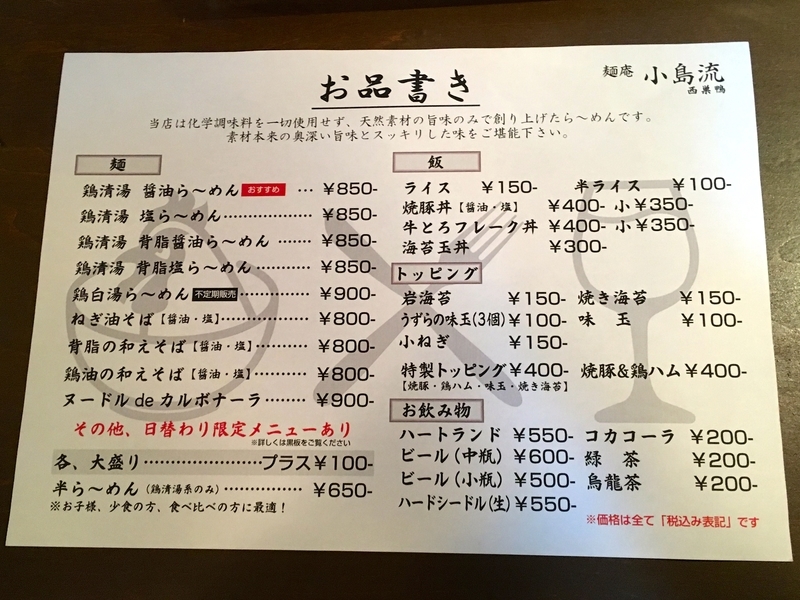 お品書き
麺庵 小島流
西巣鴨
当店は化学調味料を一切使用せず、天然素材の旨味のみで創り上げたら〜めんです。
素材本来の奥深い旨味とスッキリした味をご堪能下さい。
麺
鶏清湯 醤油ら〜めん おすすめ … ¥850-
鶏清湯 塩ら〜めん……………… ¥850-
鶏清湯 背脂醤油ら〜めん ……… ¥850-
鶏清湯 背脂塩ら〜めん ………… ¥850-
鶏白湯ら〜めん 不定期販売 ………… ¥900-
ねぎ油そば【醤油・塩】……………… ¥800-
背脂の和えそば【醤油・塩】………… ¥800-
鶏油の和えそば【醤油・塩】………… ¥800-
ヌードル de カルボナーラ………… ¥900-
その他、日替わり限定メニューあり
※詳しくは黒板をご覧ください
各、大盛り…………………プラス¥100-
半ら〜めん(鶏清湯系のみ)…………… ¥650-
※お子様、少食の方、食べ比べの方に最適!
飯
ライス ¥150- 半ライス ¥100-
焼豚丼【醤油・塩】 ¥400- 小¥350-
牛とろフレーク丼 ¥400- 小¥350-
海苔玉丼 ¥300-
トッピング
岩海苔 ¥150- 焼き海苔 ¥150-
うずらの味玉(3個) ¥100- 味 玉 ¥100-
小ねぎ ¥150-
特製トッピング ¥400- 焼豚&鶏ハム ¥400-
【焼豚・鶏ハム・味玉・焼き海苔】
お飲み物
ハートランド ¥550- コカコーラ ¥200-
ビール(中瓶) ¥600- 緑 茶 ¥200-
ビール(小瓶) ¥500- 烏龍茶 ¥200-
ハードシードル(生) ¥550-
※価格は全て「税込み表記」です